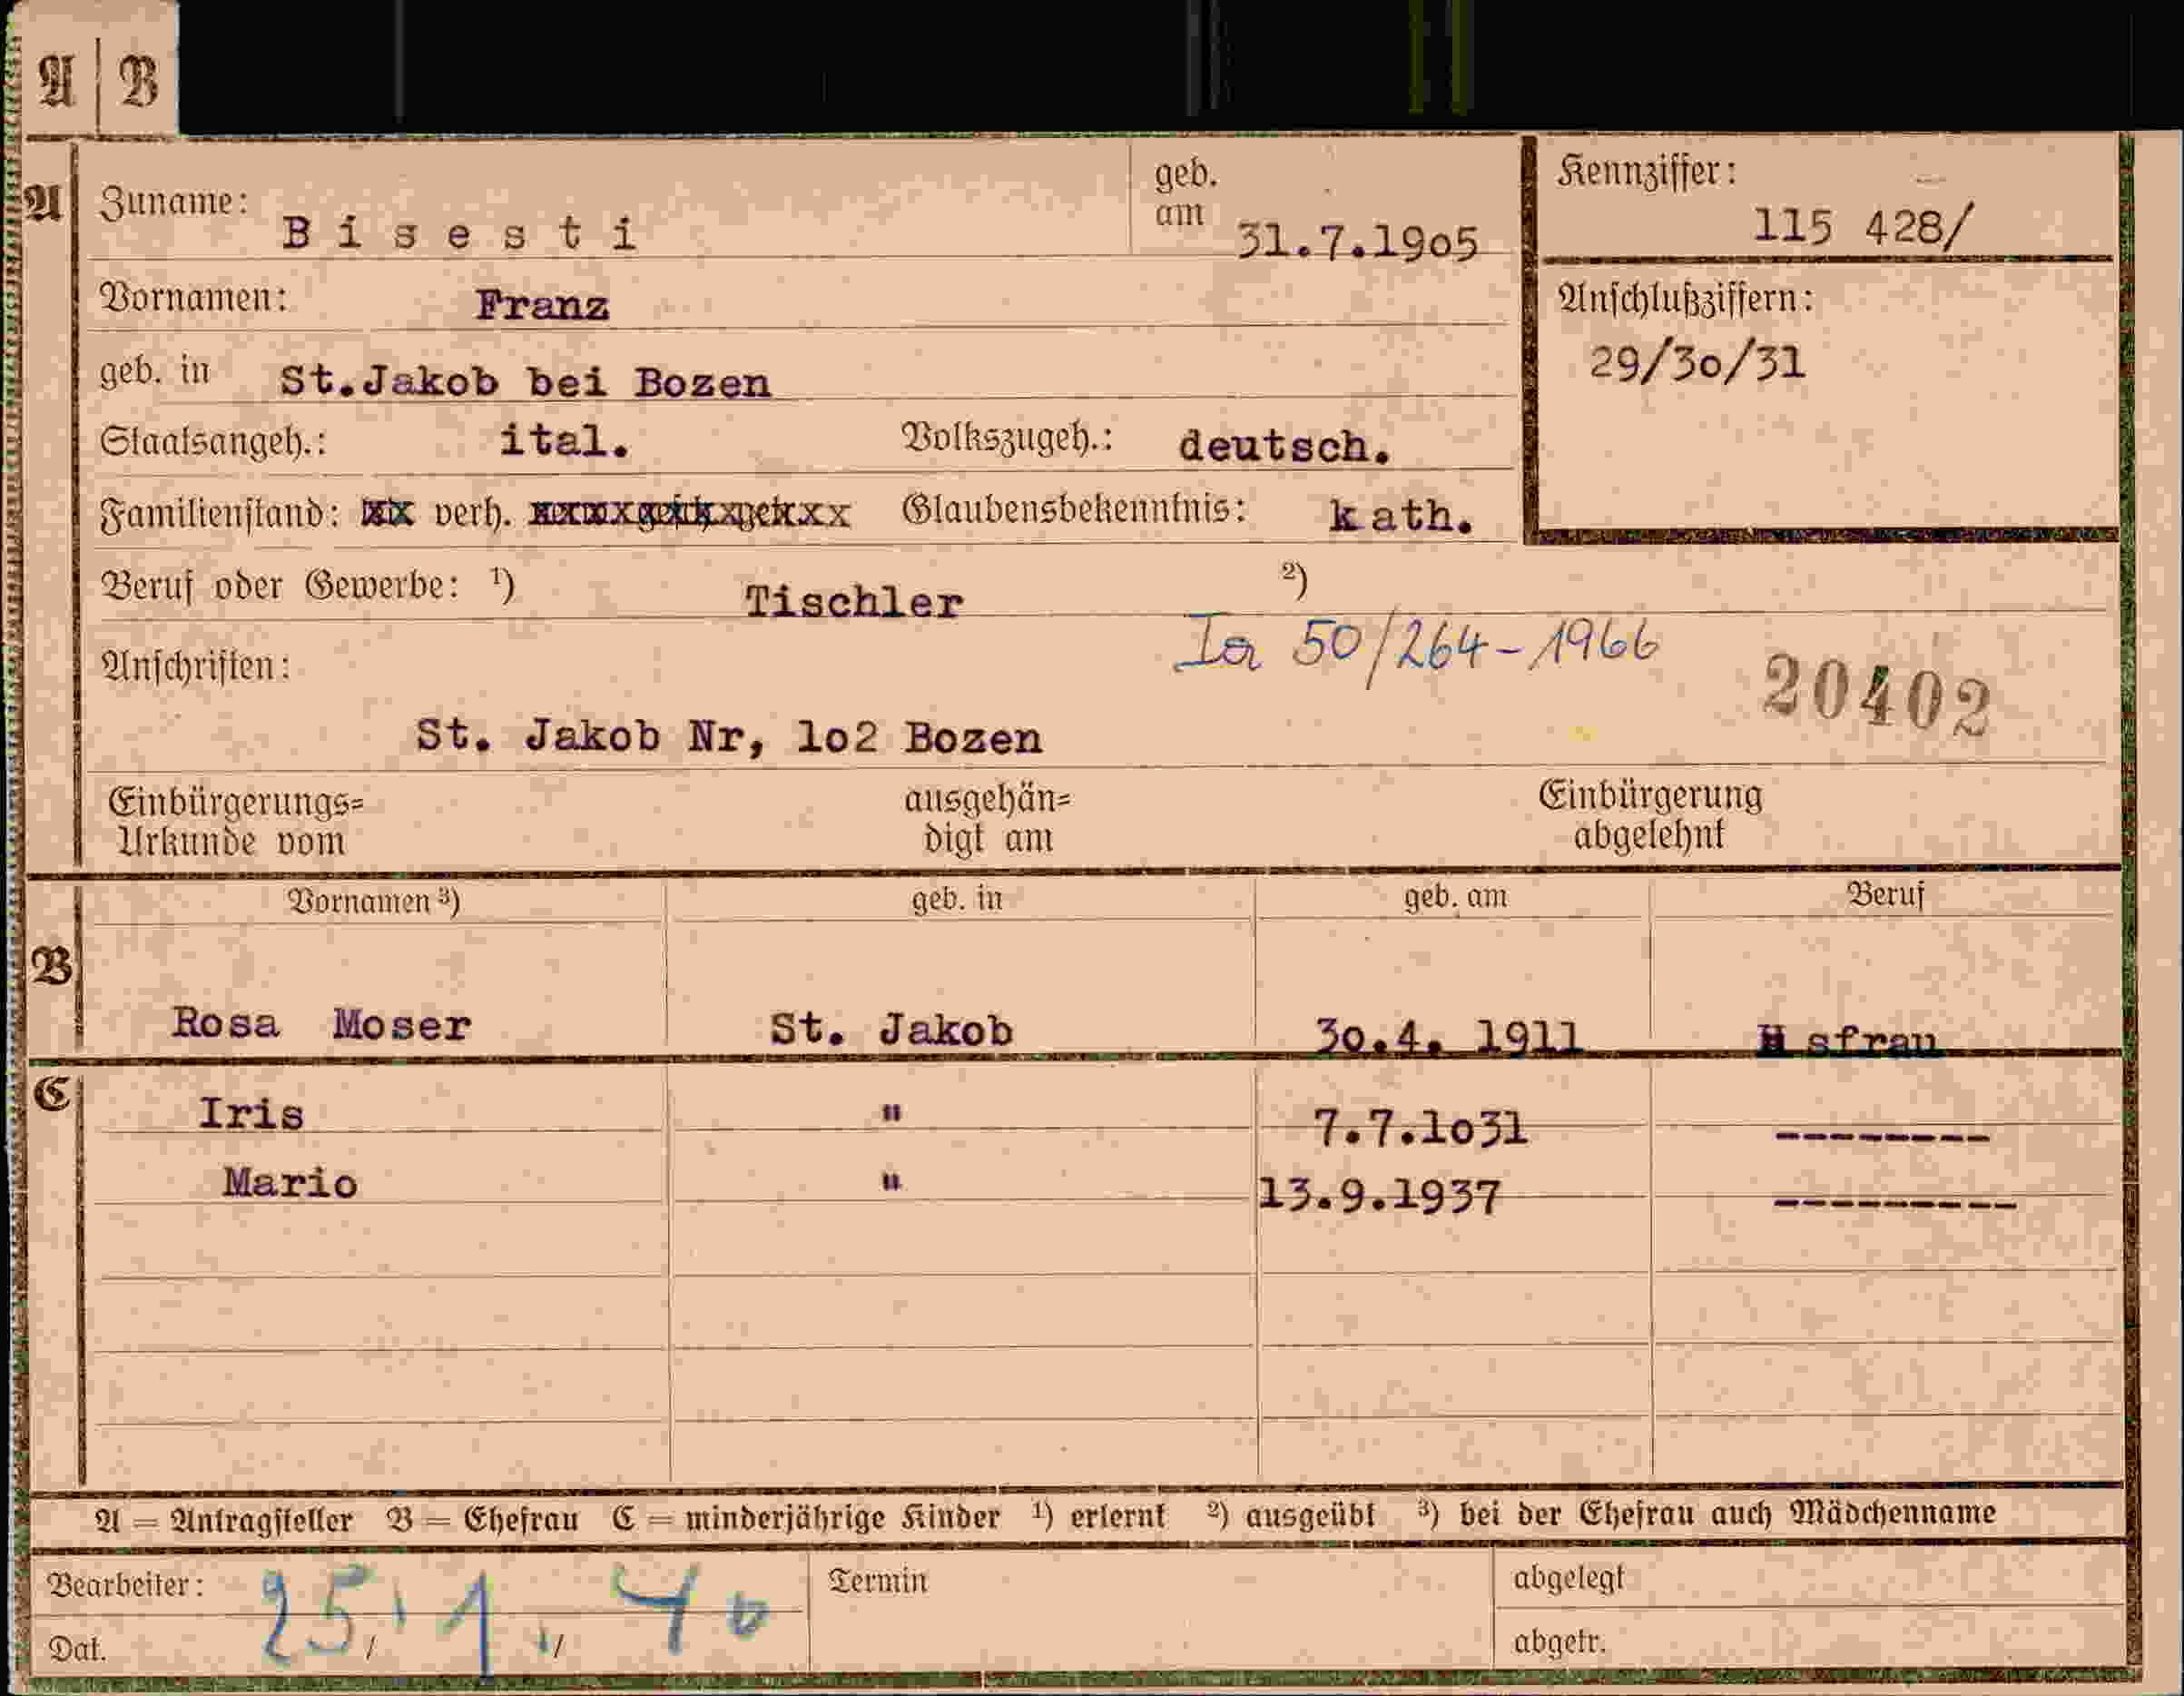 A | B
A Zuname: Bisesti geb. am 31.7.19o5 Kennziffer: 115 428/
Vornamen: Franz Anschlußziffern:
29/3o/31
geb. in St.Jakob bei Bozen
Staatsangeh.: ital. Volkszugeh.: deutsch.
Familienstand: verh. Glaubensbekenntnis: kath.
Beruf oder Gewerbe: ¹) Tischler ²)
Ia 50/264-1966
Anschriften: 20402
St. Jakob Nr, lo2 Bozen
Einbürgerungs= ausgehän= Einbürgerung
Urkunde vom digt am abgelehnt
Vornamen ³) geb. in geb. am Beruf
B
Rosa Moser St. Jakob 3o.4. 1911 H sfrau
C
Iris " 7.7.1o31 --------
Mario " 13.9.1937 ---------
A = Antragsteller B = Ehefrau C = minderjährige Kinder ¹) erlernt ²) ausgeübt ³) bei der Ehefrau auch Mädchenname
Bearbeiter: Termin abgelegt
25. 1. 40
Dat. / / abgetr.